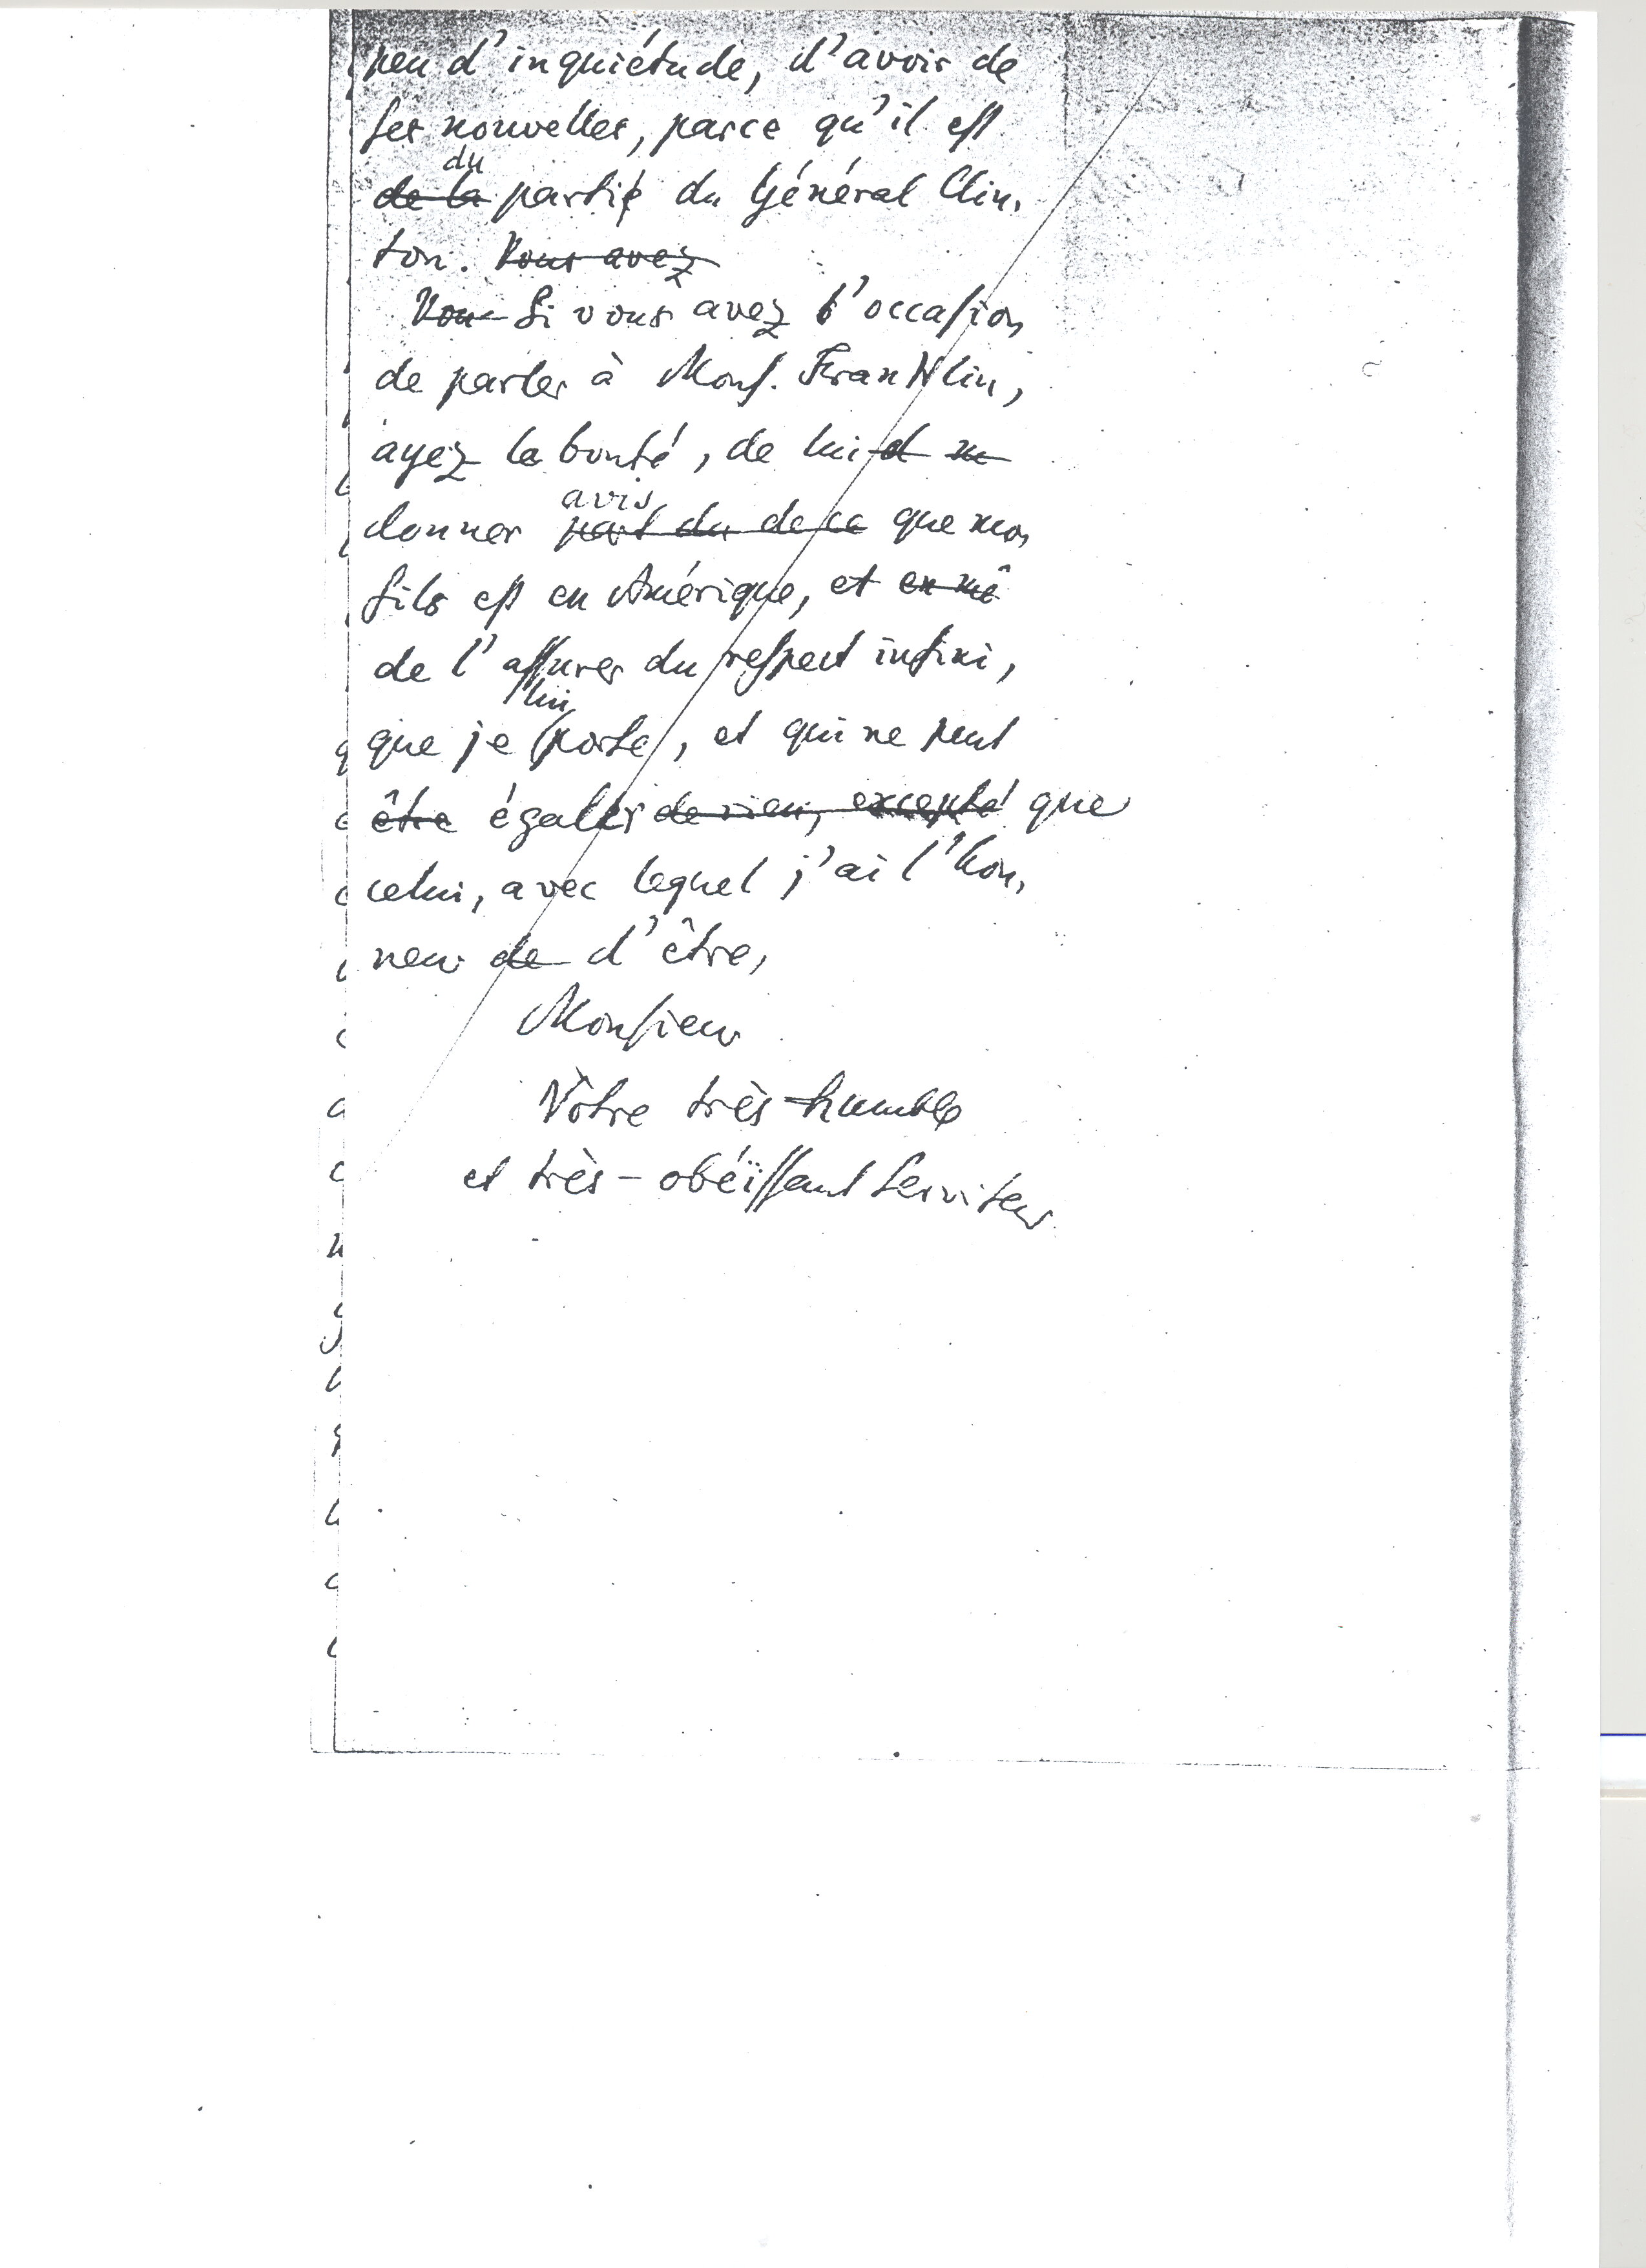 peu d'inquiétude, d'avoir de
ſes nouvelles, parce qu'il eſt
du
de la partie du Général Clin,
ton. Vous avez
Vou Si vous avez l'occaſion
de parler à Monſ. Franklin,
ayez la bonté, de lui d m
avis
donner part du de ce que mon
fils eſt en Amérique, et en mê
de l'aſſurer du reſpect infini,
lui
que je porte, et qui ne peut
être égaler de rien, excepté que
celui, avec lequel j'ai l'hon,
neur de d'être,
Monſieur
Vôtre très-humble
et très-obéïſſant Serviteur